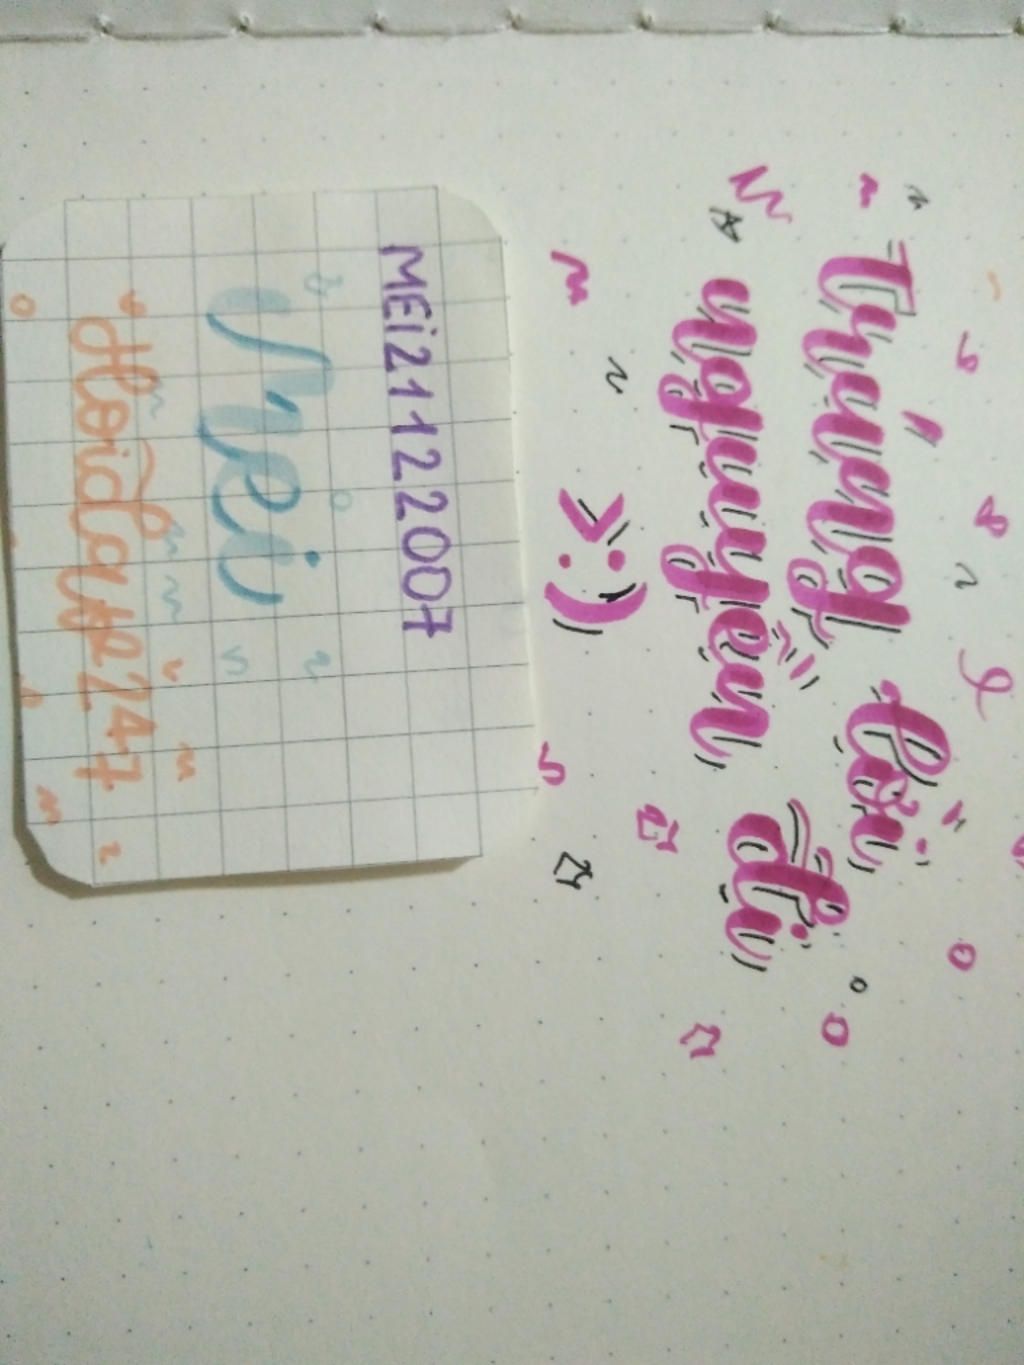 Trùng rồi
nguyện đi
>:)
MEi21122007
Mei
Hoidap247